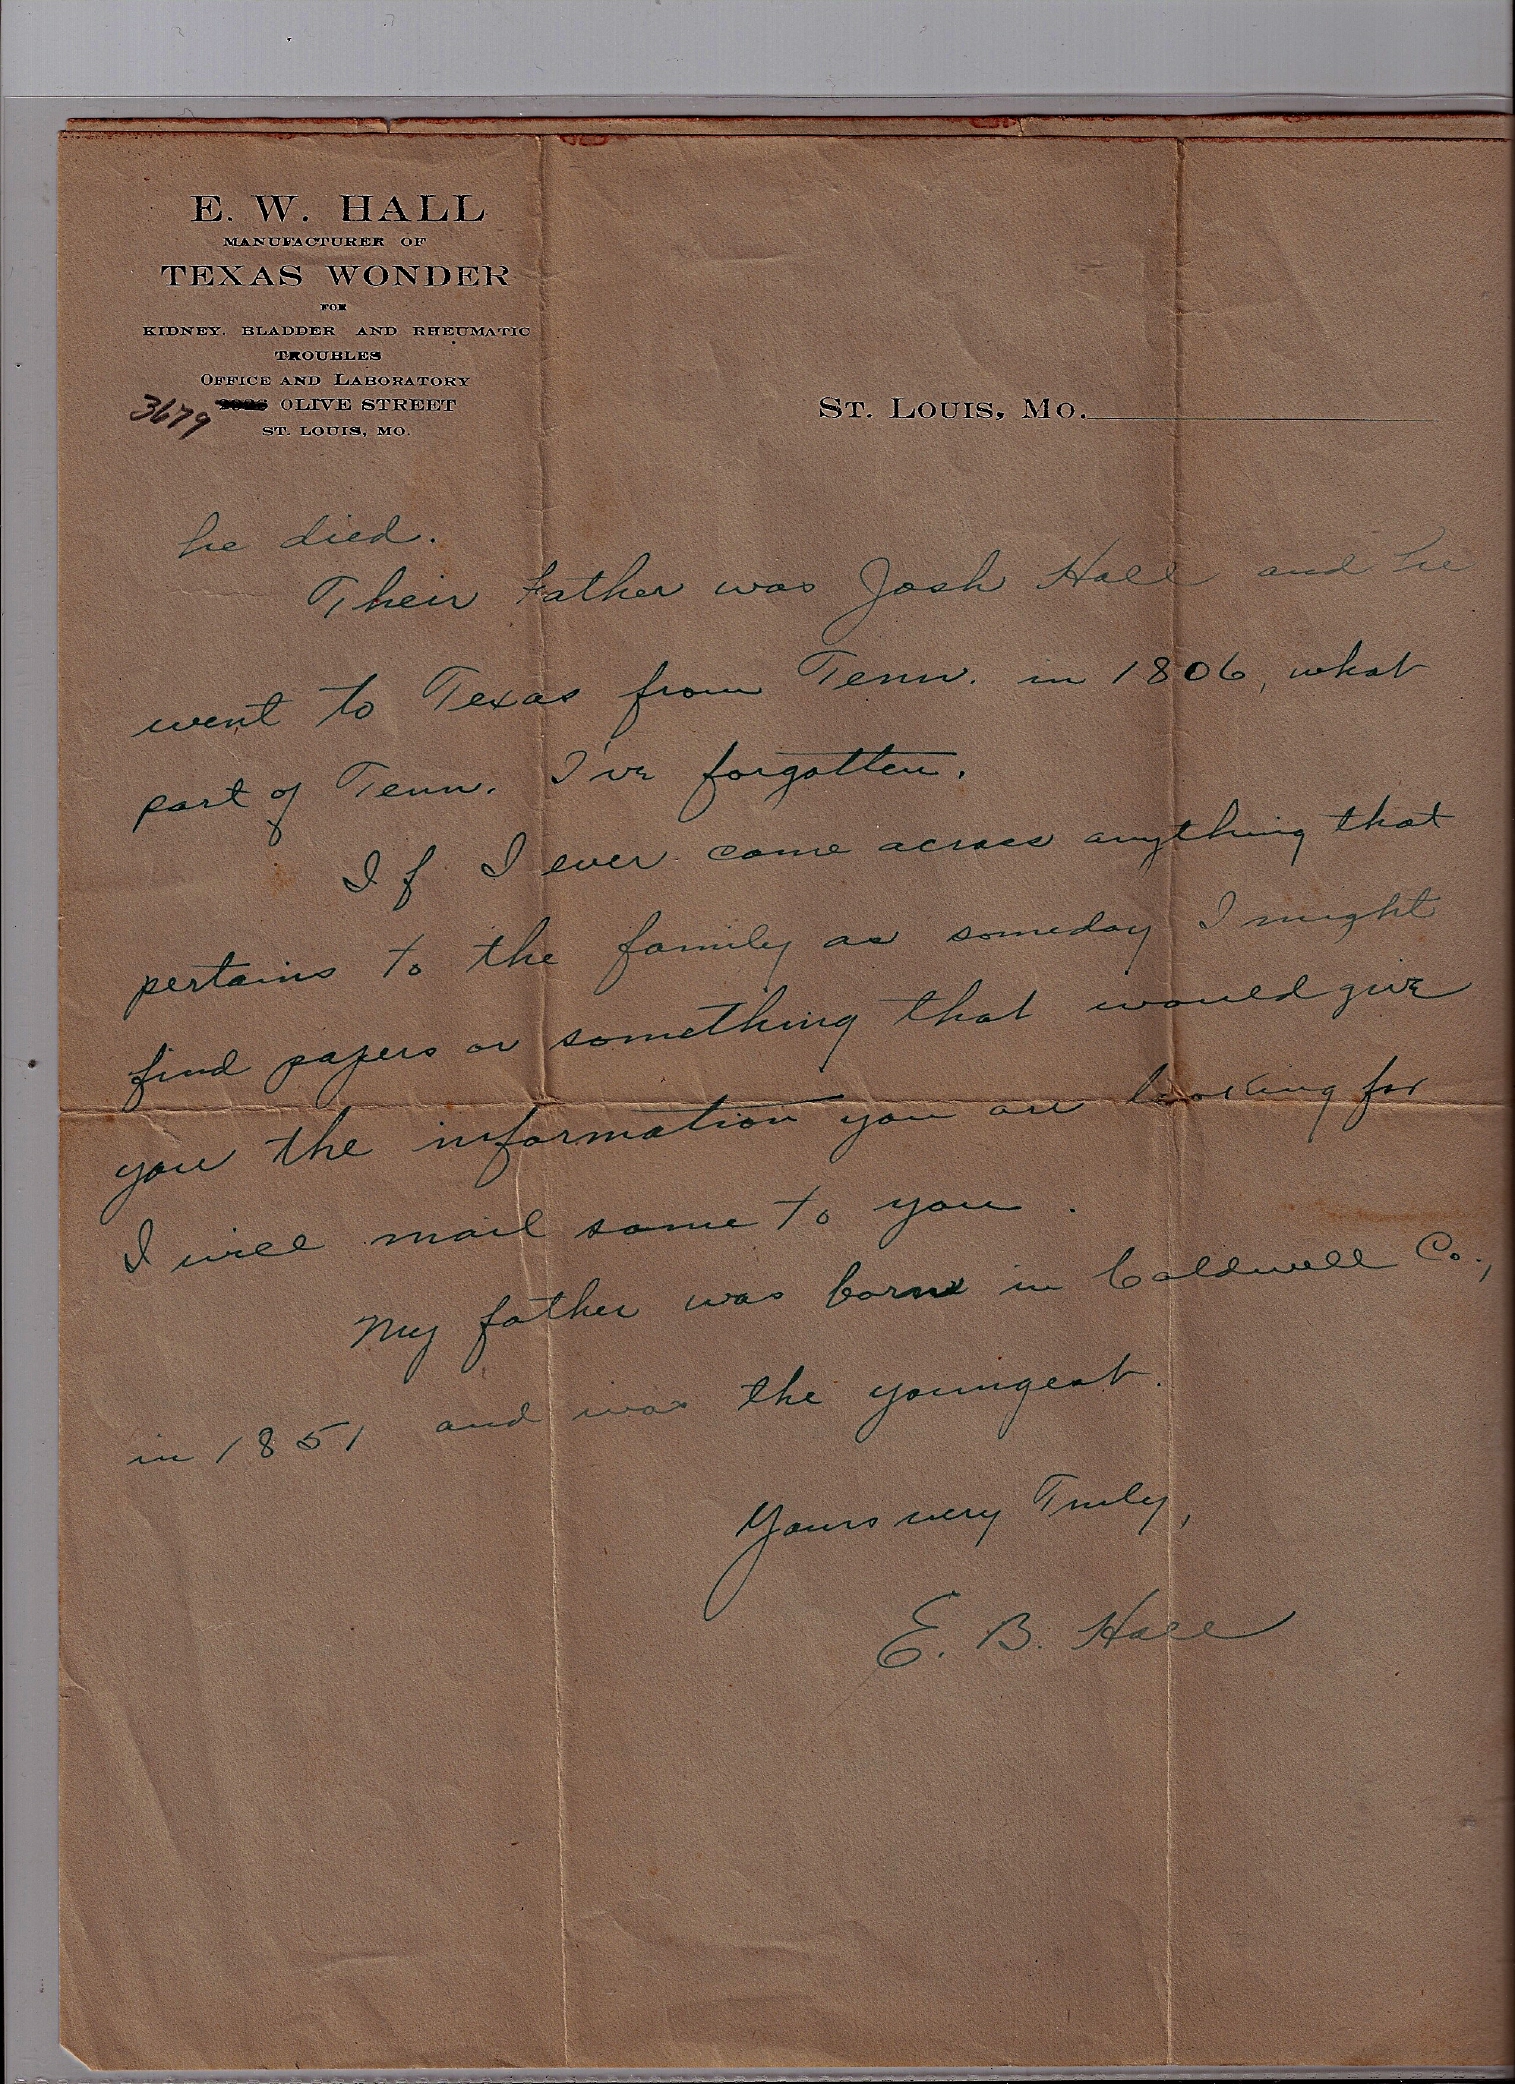 E. W. HALL
MANUFACTURER OF
TEXAS WONDER
FOR
KIDNEY, BLADDER AND RHEUMATIC
TROUBLES
OFFICE AND LABORATORY
3679 OLIVE STREET
ST. LOUIS, MO.
ST. LOUIS, MO.
he died.
Their Father was Josh Hall and he
went to Texas from Tenn. in 1806, what
part of Tenn. I've forgotten.
If I ever come across anything that
pertains to the family as someday I might
find papers or something that would give
you the information you are looking for
I will mail same to you.
My father was born in Caldwell Co.,
in 1851 and was the youngest.
Yours very Truly,
E. B. Hall